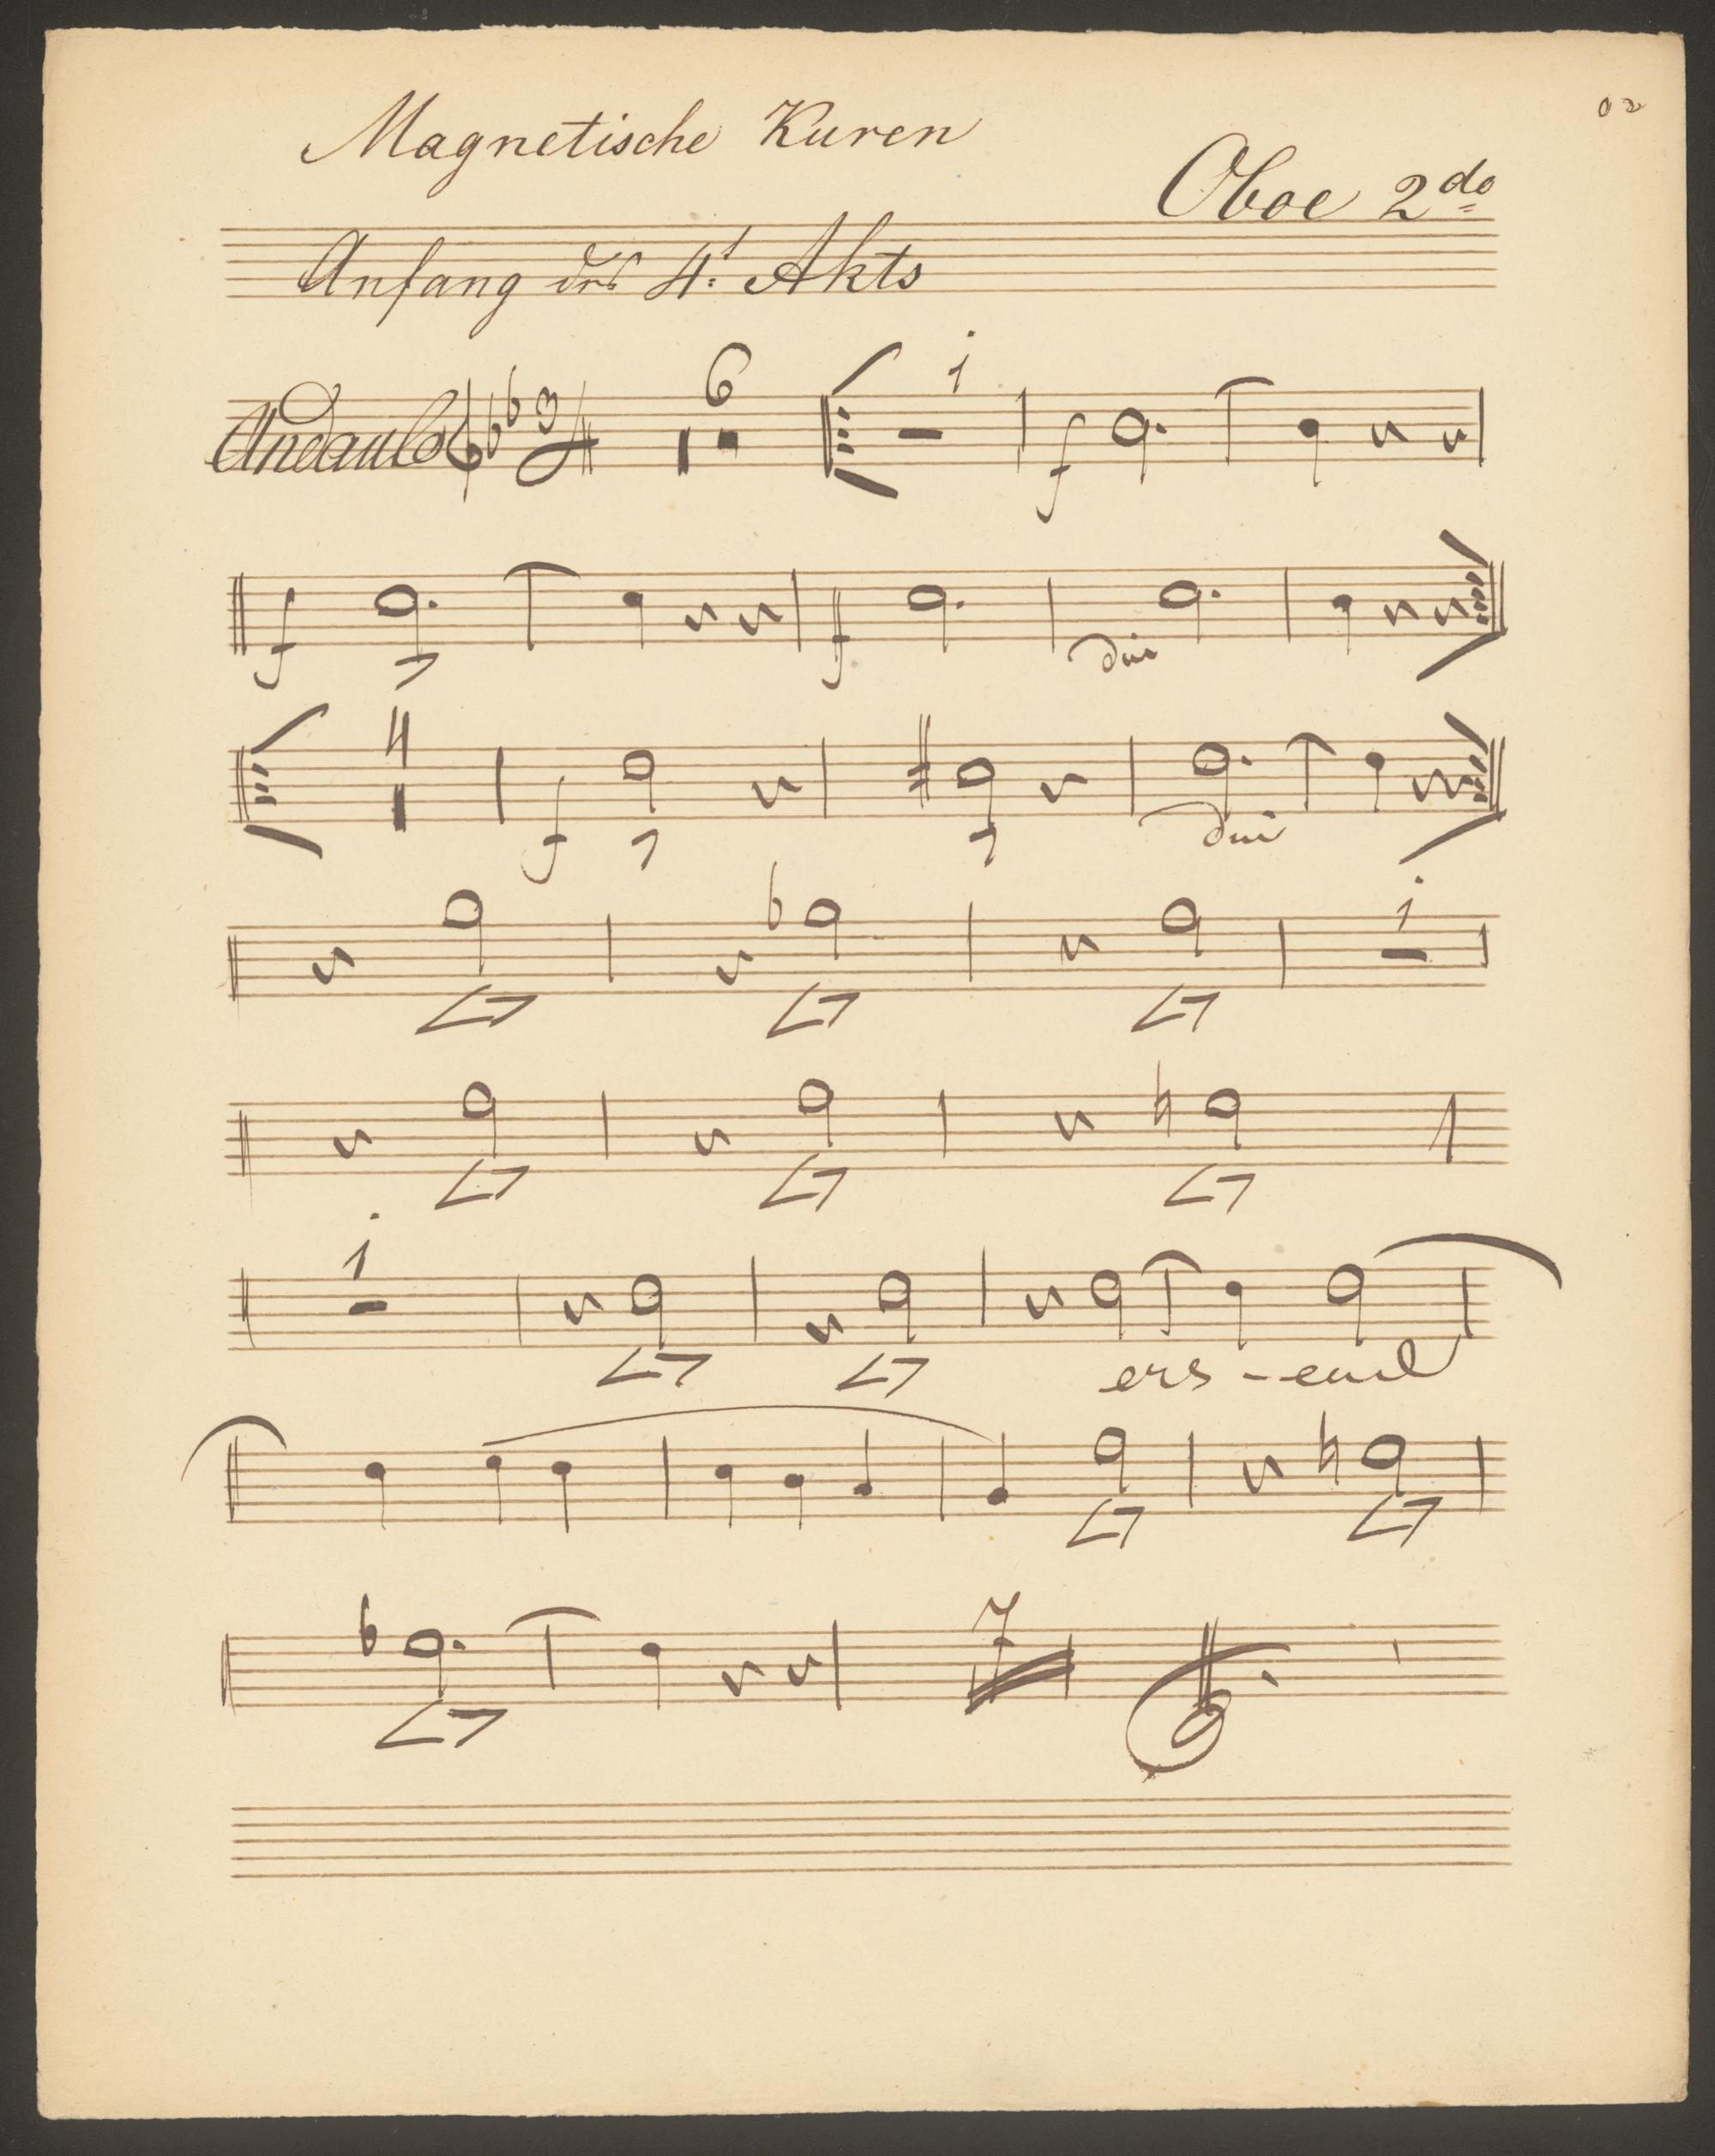 Magnetische Kuren
Oboe 2do
Anfang des 4t Akts
Andante 3/4 6 1 f
f f dim
4 f dim
1
1 cresc
7